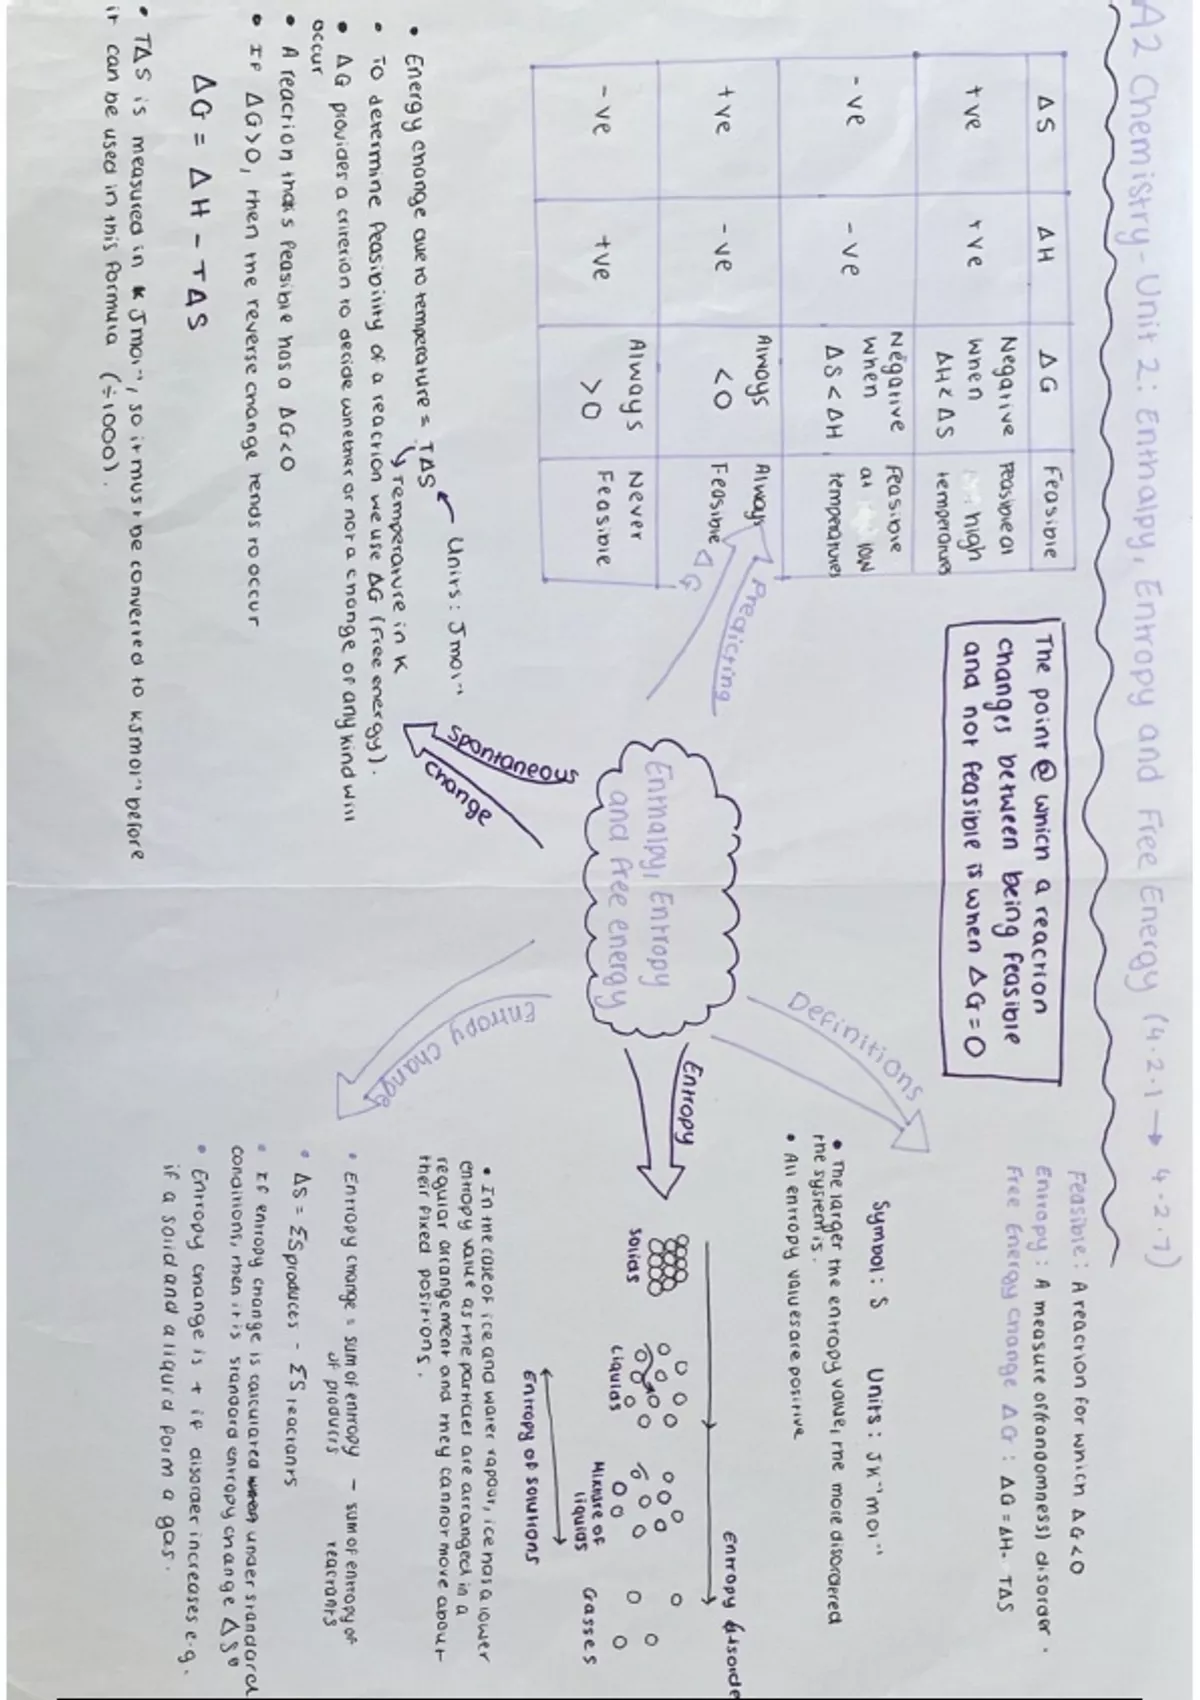 A2 Chemistry - Unit 2: Enthalpy, Entropy and Free Energy (4.2.1 → 4.2.7)
ΔS ΔH ΔG Feasible
+ve +ve Negative when ΔH < ΔS Feasible at high temperatures
-ve -ve Negative when ΔS < ΔH Feasible at low temperatures
+ve -ve Always <0 Always Feasible
-ve +ve Always >0 Never Feasible
The point @ which a reaction
changes between being feasible
and not feasible is when ΔG = 0
Feasible: A reaction for which ΔG<0
Entropy: A measure of (randomness) disorder.
Free Energy change ΔG: ΔG = ΔH - TΔS
Predicting
ΔG
Definitions
Symbol: S Units: JK⁻¹mol⁻¹
• The larger the entropy value, the more disordered
the system is.
• All entropy values are positive
Enthalpy, Entropy
and free energy
Entropy
Entropy disorde
Solids
Liquids
Mixture of
liquids
Gasses
Entropy of solutions
• In the case of ice and water vapour, ice has a lower
entropy value as the particles are arranged in a
regular arrangement and they cannot move about
their fixed positions.
Spontaneous
change
• Energy change due to temperature = TΔS
Units: Jmol⁻¹
Temperature in K
• To determine feasibility of a reaction we use ΔG (free energy).
• ΔG provides a criterion to decide whether or not a change of any kind will
occur
• A reaction thats feasible has a ΔG<0
• If ΔG>0, then the reverse change tends to occur
ΔG = ΔH - TΔS
• TΔS is measured in kJmol⁻¹, so it must be converted to kJmol⁻¹ before
it can be used in this formula (÷1000).
Entropy change
• Entropy change = sum of entropy of products - sum of entropy of reactants
• ΔS = ΣS produces - ΣS reactants
• If entropy change is calculated under standard
conditions, then it is standard entropy change ΔS°
• Entropy change is + if disorder increases e.g.
if a solid and a liquid form a gas.